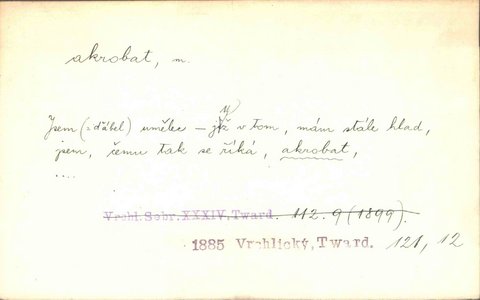 akrobat, m.
Jsem (= ďábel) umělec – jýž v tom, mám stále hlad,
jsem, čemu tak se říká, akrobat,
....
Vrchl.Sebr.XXXIV,Tward. 112. 9 (1899).
1885 Vrchlický,Tward. 121, 12